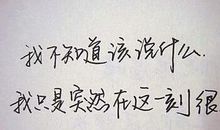 我不知道该说什么.
我只是突然在这一刻很